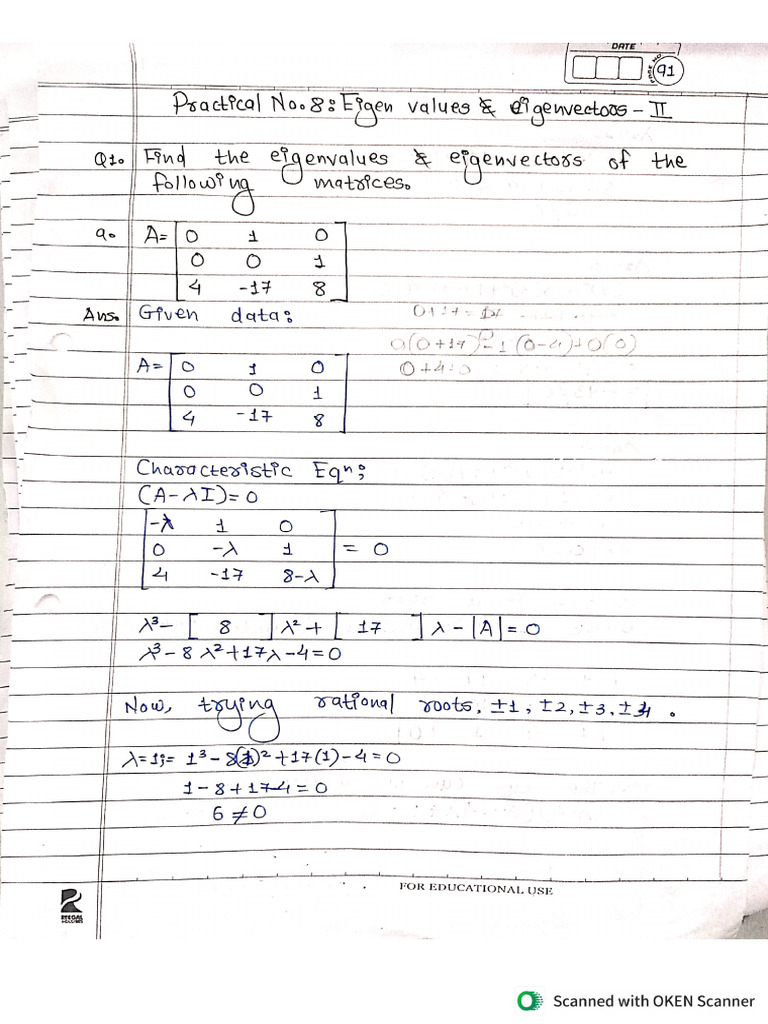 DATE
PAGE NO
91
Practical No. 8: Eigen values & eigenvectors - II
Q1. Find the eigenvalues & eigenvectors of the
following matrices.
a. A= [0 1 0
0 0 1
4 -17 8]
Ans. Given data:
0(0+17) - 1(0-4)+0(0)
0+4=0
A= [0 1 0
0 0 1
4 -17 8]
Characteristic Eqⁿ;
(A-λI)=0
|-λ 1 0
0 -λ 1
4 -17 8-λ| = 0
λ³- [ 8 ] λ² + [ 17 ] λ - |A| = 0
λ³ - 8 λ² + 17λ - 4 = 0
Now, trying rational roots, ±1, ±2, ±3, ±4.
λ=1;= 1³ - 8(1)² + 17(1) - 4 = 0
1 - 8 + 17-4 = 0
6 ≠ 0
FOR EDUCATIONAL USE
Scanned with OKEN Scanner